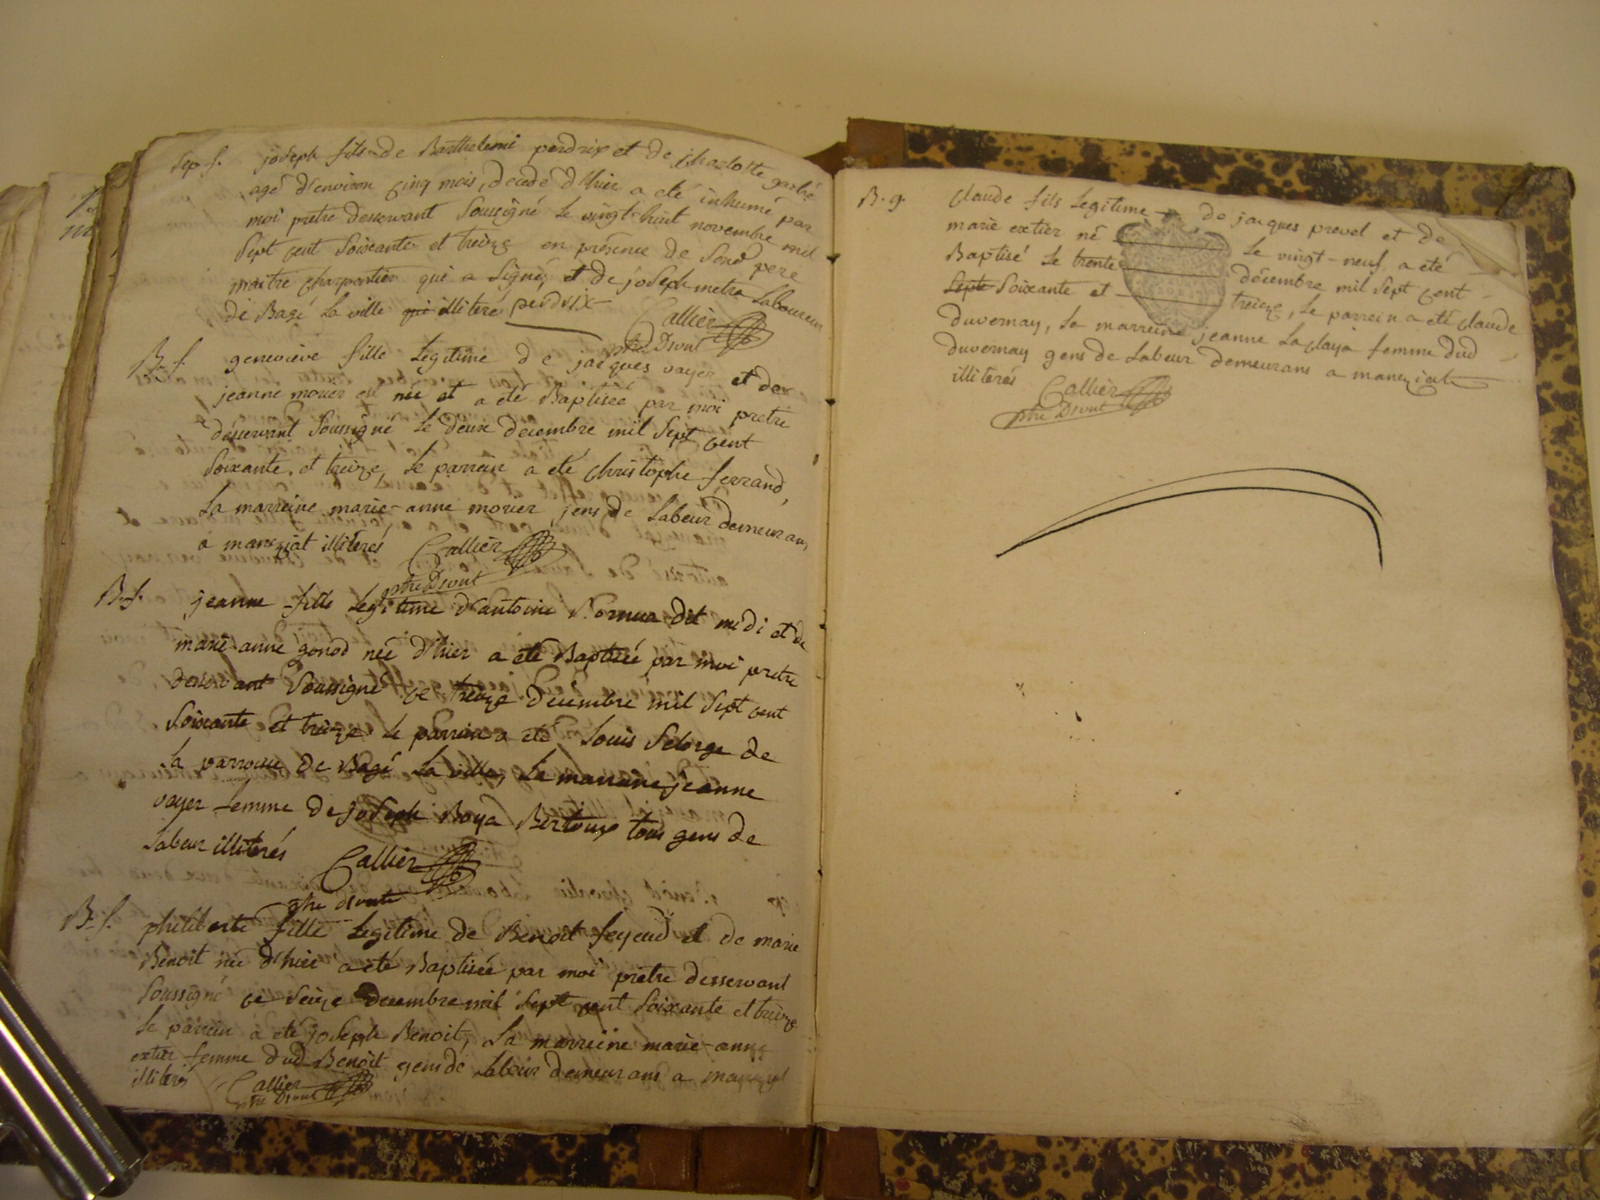 Sep. f. joseph fils de Barthelemi perdrix et de Charlotte
agé d'environ cinq mois, decedé d'hier a eté inhumé par
moi pretre desservant soussigné le vingt-huit novembre mil
sept cent soixante et treize en présence de sond pere
maitre charpentier qui a signé, et de joseph metra Laboureur
de Bagé la ville illiteré perdrix
Callier
ptre Dsvnt
B. f. geneviève fille Legitime de jacques vayer et de
jeanne morier est née et a eté Baptisée par moi pretre
desservant soussigné le deux decembre mil sept cent
soixante et treize, le parrein a eté christophe ferrand,
La marreine marie-anne morier jens de Labeur demeurans
a manziat illiterés Callier
ptre Dsvnt
B. f. jeanne fille Legitime d'antoine dit midi et de
marie-anne gonod née d'hier a eté Baptisée par moi pretre
desservant soussigné ce treize decembre mil sept cent
soixante et treize le parrein a eté Louis Selorge de
la parroisse de Bagé la ville, La marraine jeanne
vayer femme de joseph Boya tous gens de
Labeur illiterés Callier
ptre dsvnt
B. f. philiberte fille Legitime de Benoit feyeud et de marie
Benoit née d'hier a eté Baptisée par moi pretre desservant
soussigné ce seize decembre mil sept cent soixante et treize
le parrein a eté joseph Benoit, La marreine marie-anne
extier femme dud Benoit gens de Labeur demeurans a manziat
illiterés Callier
ptre Dsvnt
B. g. Claude fils Legitime de jacques prevel et de
marie extier né le vingt-neuf a eté
Baptisé le trente décembre mil sept cent
septe soixante et treize, le parrein a eté claude
duvernay, la marreine jeanne La claya femme dud
duvernay gens de Labeur demeurans a manziat
illiterés Callier
ptre Dsvnt